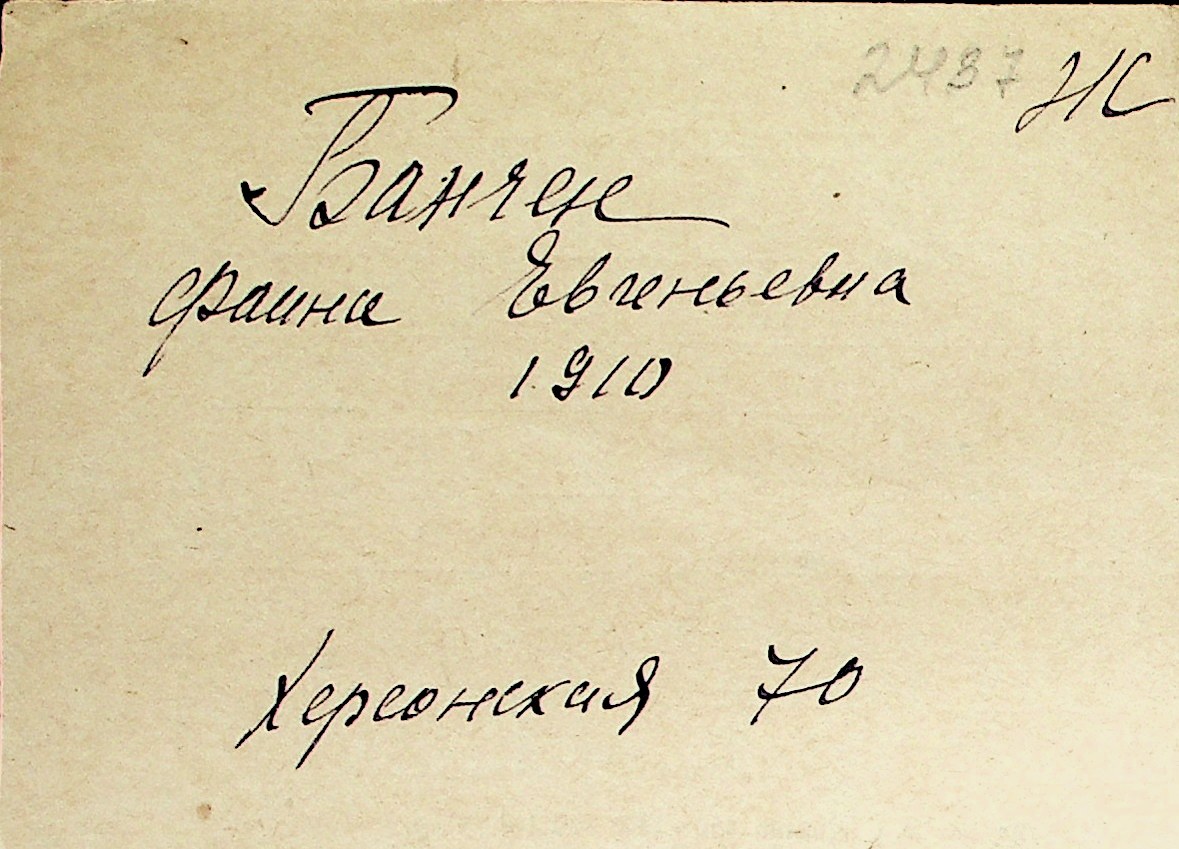 2437 Ж
Банчен
Фаина Евгеньевна
1910
Херсонская 70